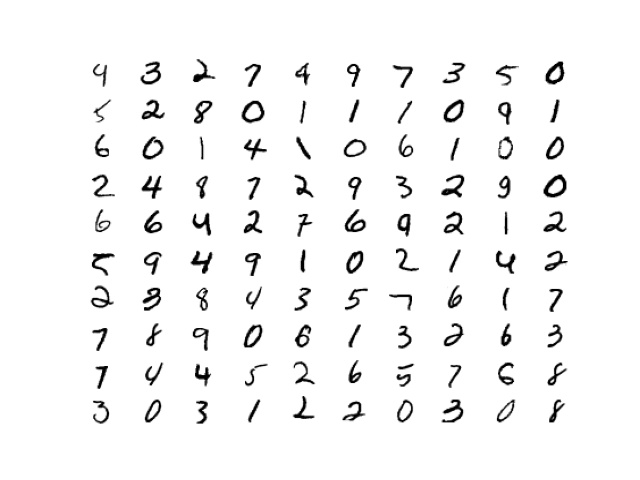 4 3 2 7 4 9 7 3 5 0
5 2 8 0 1 1 1 0 9 1
6 0 1 4 1 0 6 1 0 0
2 4 8 7 2 9 3 2 9 0
6 6 4 2 7 6 9 2 1 2
5 9 4 9 1 0 2 1 4 2
2 3 8 4 3 5 7 6 1 7
7 8 9 0 6 1 3 2 6 3
7 4 4 5 2 6 5 7 6 8
3 0 3 1 2 2 0 3 0 8